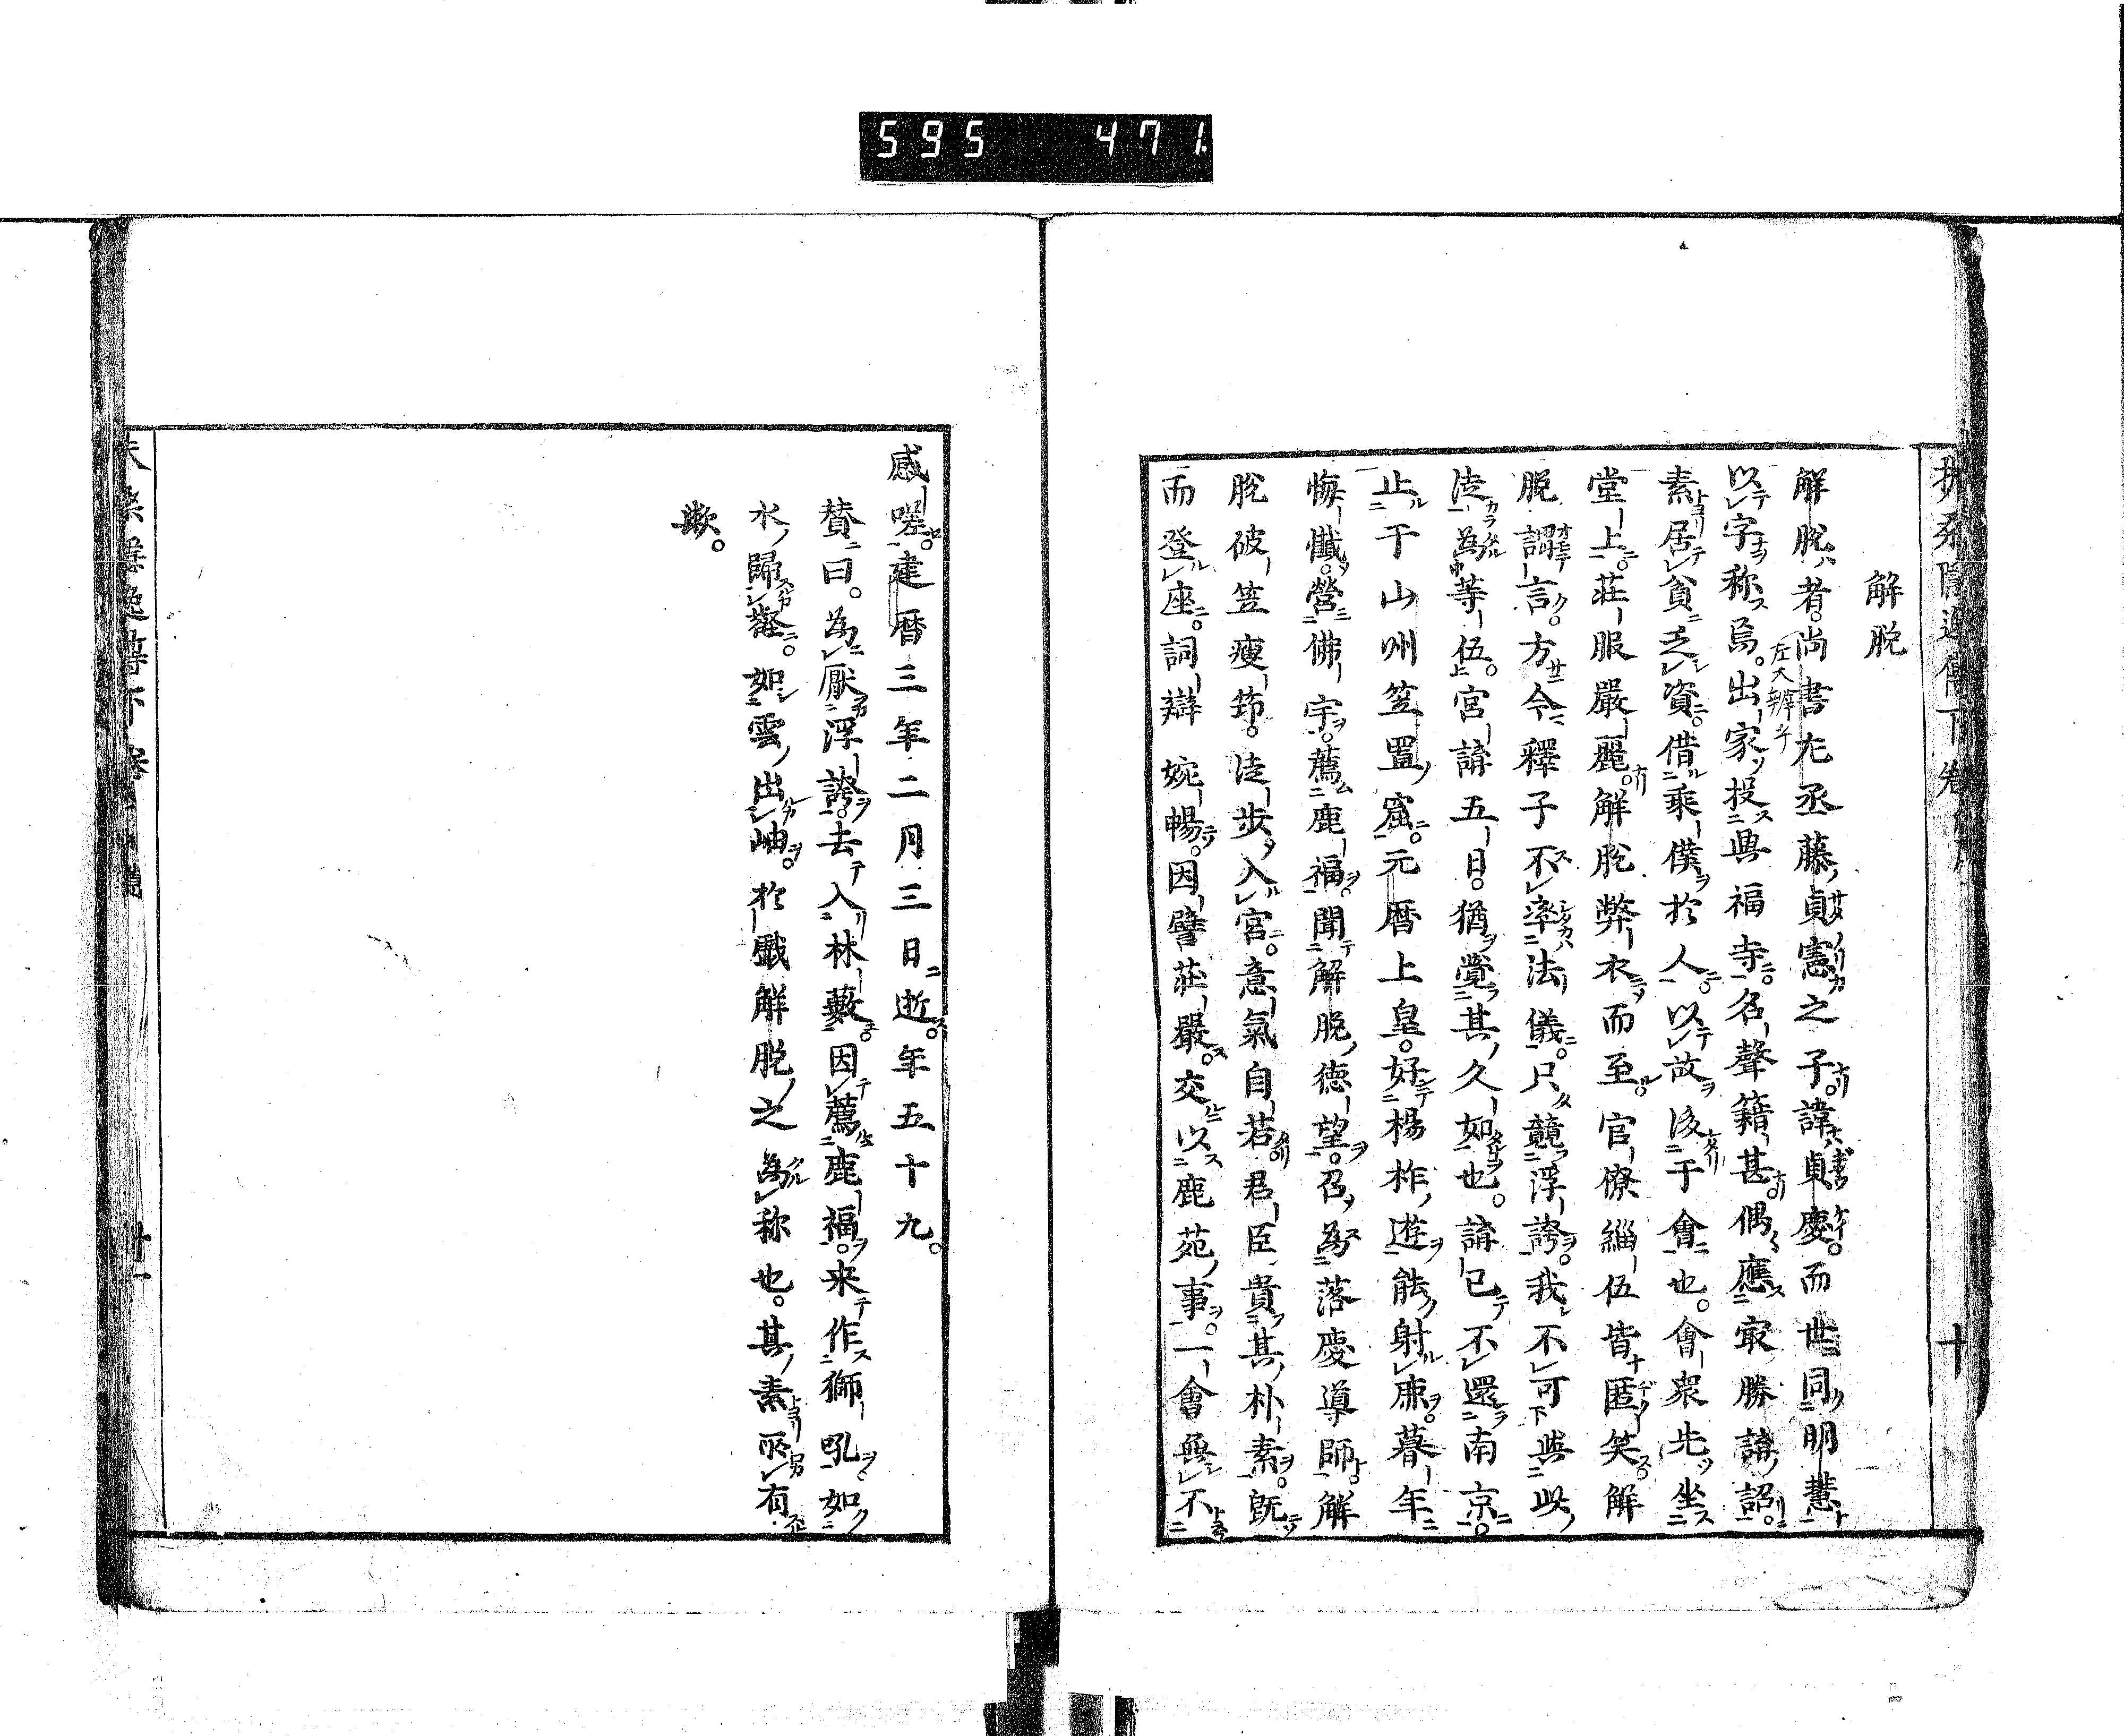 595 471
解脱
解脱者。尚書尢丞藤貞憲之子。諱貞慶。而世同明慧
左大辨乎
以字称焉。出家投興福寺。名聲籍甚。偶應㝡勝講詔。
素居貧乏資。借乗僕於人。以故後于會也。會衆先坐
堂上。荘服嚴麗。解脱弊衣而至。官僚緇伍皆匿笑。解
脱謂言。方今釋子不率法儀。只競浮誇。我不可與此
徒為等伍。宮講五日。猶覺其久如也。講已不還南京。
止于山州笠置窟。元暦上皇。好楊柞遊能射麃。暮年
悔懺。營佛宇。薦鹿福。聞解脱徳望。召為落慶導師。解
脱破笠痩笻。徒歩入宮。意氣自若。君臣貴其朴素。既
而登座。詞辯婉暢。因譬荘嚴。交以鹿苑事。一會無不
感嗟。建暦三年二月三日逝。年五十九。
賛曰。為厭浮誇。去入林藪。因薦鹿福。来作獅吼。如
水歸壑。如雲出岫。於戯解脱之為称也。其素所有
歟。